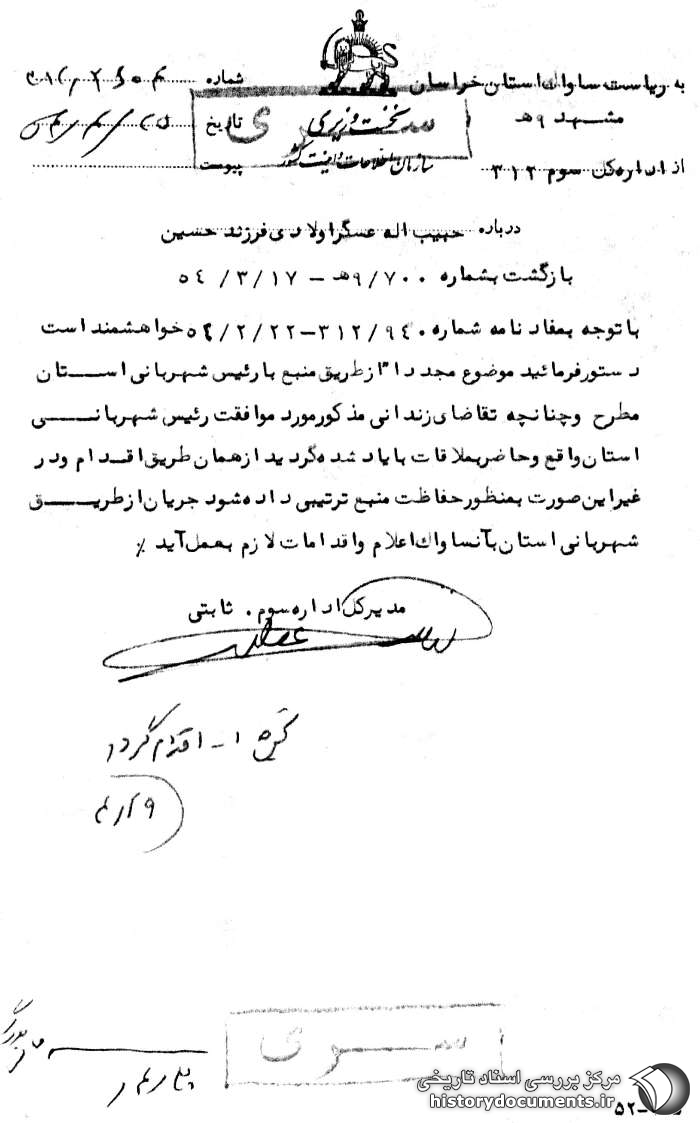 به ریاست ساواک استان خراسان
شماره
مشهد ۹ هـ
نخست وزیری
سری
تاریخ
سازمان اطلاعات و امنیت کشور
از اداره کل سوم ۳۱۲
پیوست
درباره حبیب اله عسگراولادی فرزند حسین
بازگشت بشماره ۹/۷۰۰هـ – ۵٤/۳/۱۷
با توجه بمفاد نامه شماره ۳۱۲/۹٤۰–۵٤/۲/۲۲ خواهشمند است
دستور فرمائید موضوع مجدداً از طریق منبع با رئیس شهربانی استان
مطرح و چنانچه تقاضای زندانی مذکور مورد موافقت رئیس شهربانی
استان واقع و حاضر بملاقات با یاد شده گردید از همان طریق اقدام و در
غیر این صورت بمنظور حفاظت منبع ترتیبی داده شود جریان از طریق
شهربانی استان بآنساواک اعلام و اقدامات لازم بعمل آید ٪
مدیر کل اداره سوم . ثابتی
۱ - اقدام گردد
سری
مرکز بررسی اسناد تاریخی
historydocuments.ir